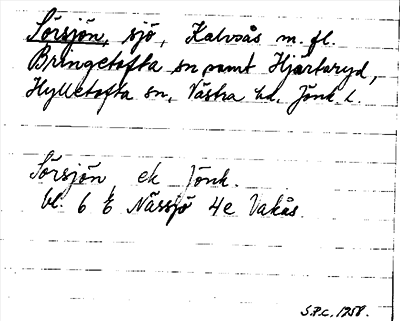 Sörsjön, sjö, Kalvsås m. fl.
Bringetofta sn samt Hjärtaryd,
Hylletofta sn, Västra hd, Jönk. l.
Sörsjön ek Jönk.
bl. 6 f Nässjö 4e Vakås.
S.P.C. 1958.